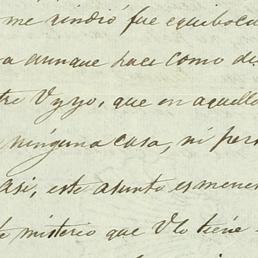 me rindió fue equiboca
a aunque hace como de
tre V y yo, que en aquello
ninguna casa, ni per
asi, este asunto es menes
te misterio que V lo tiene